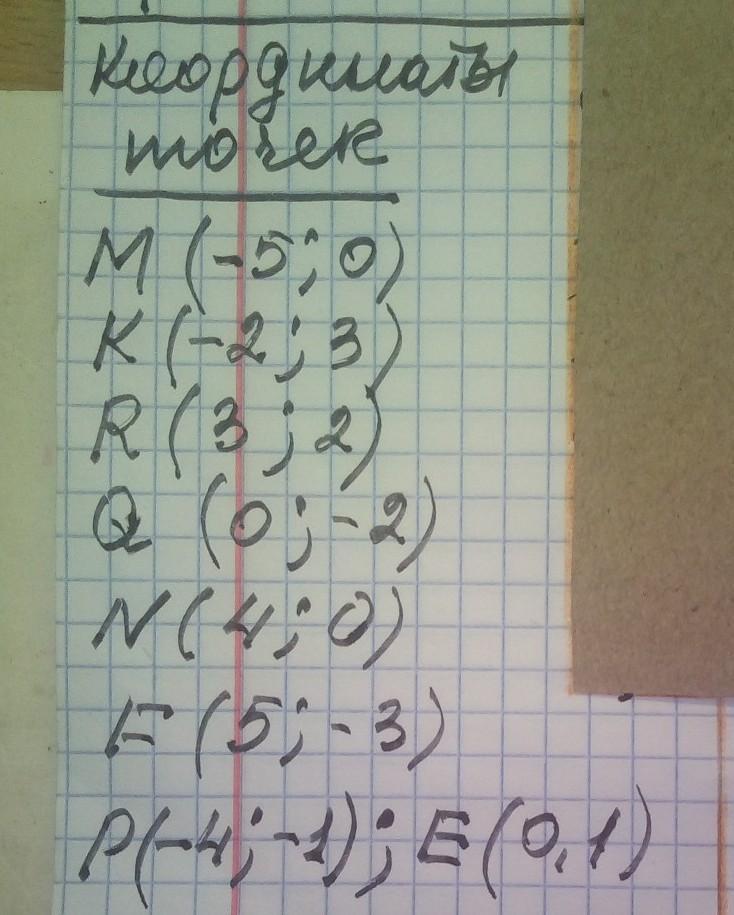 Координаты
точек
M (-5; 0)
K (-2; 3)
R (3; 2)
Q (0; -2)
N (4; 0)
F (5; -3)
P(-4; -1); E (0,1)